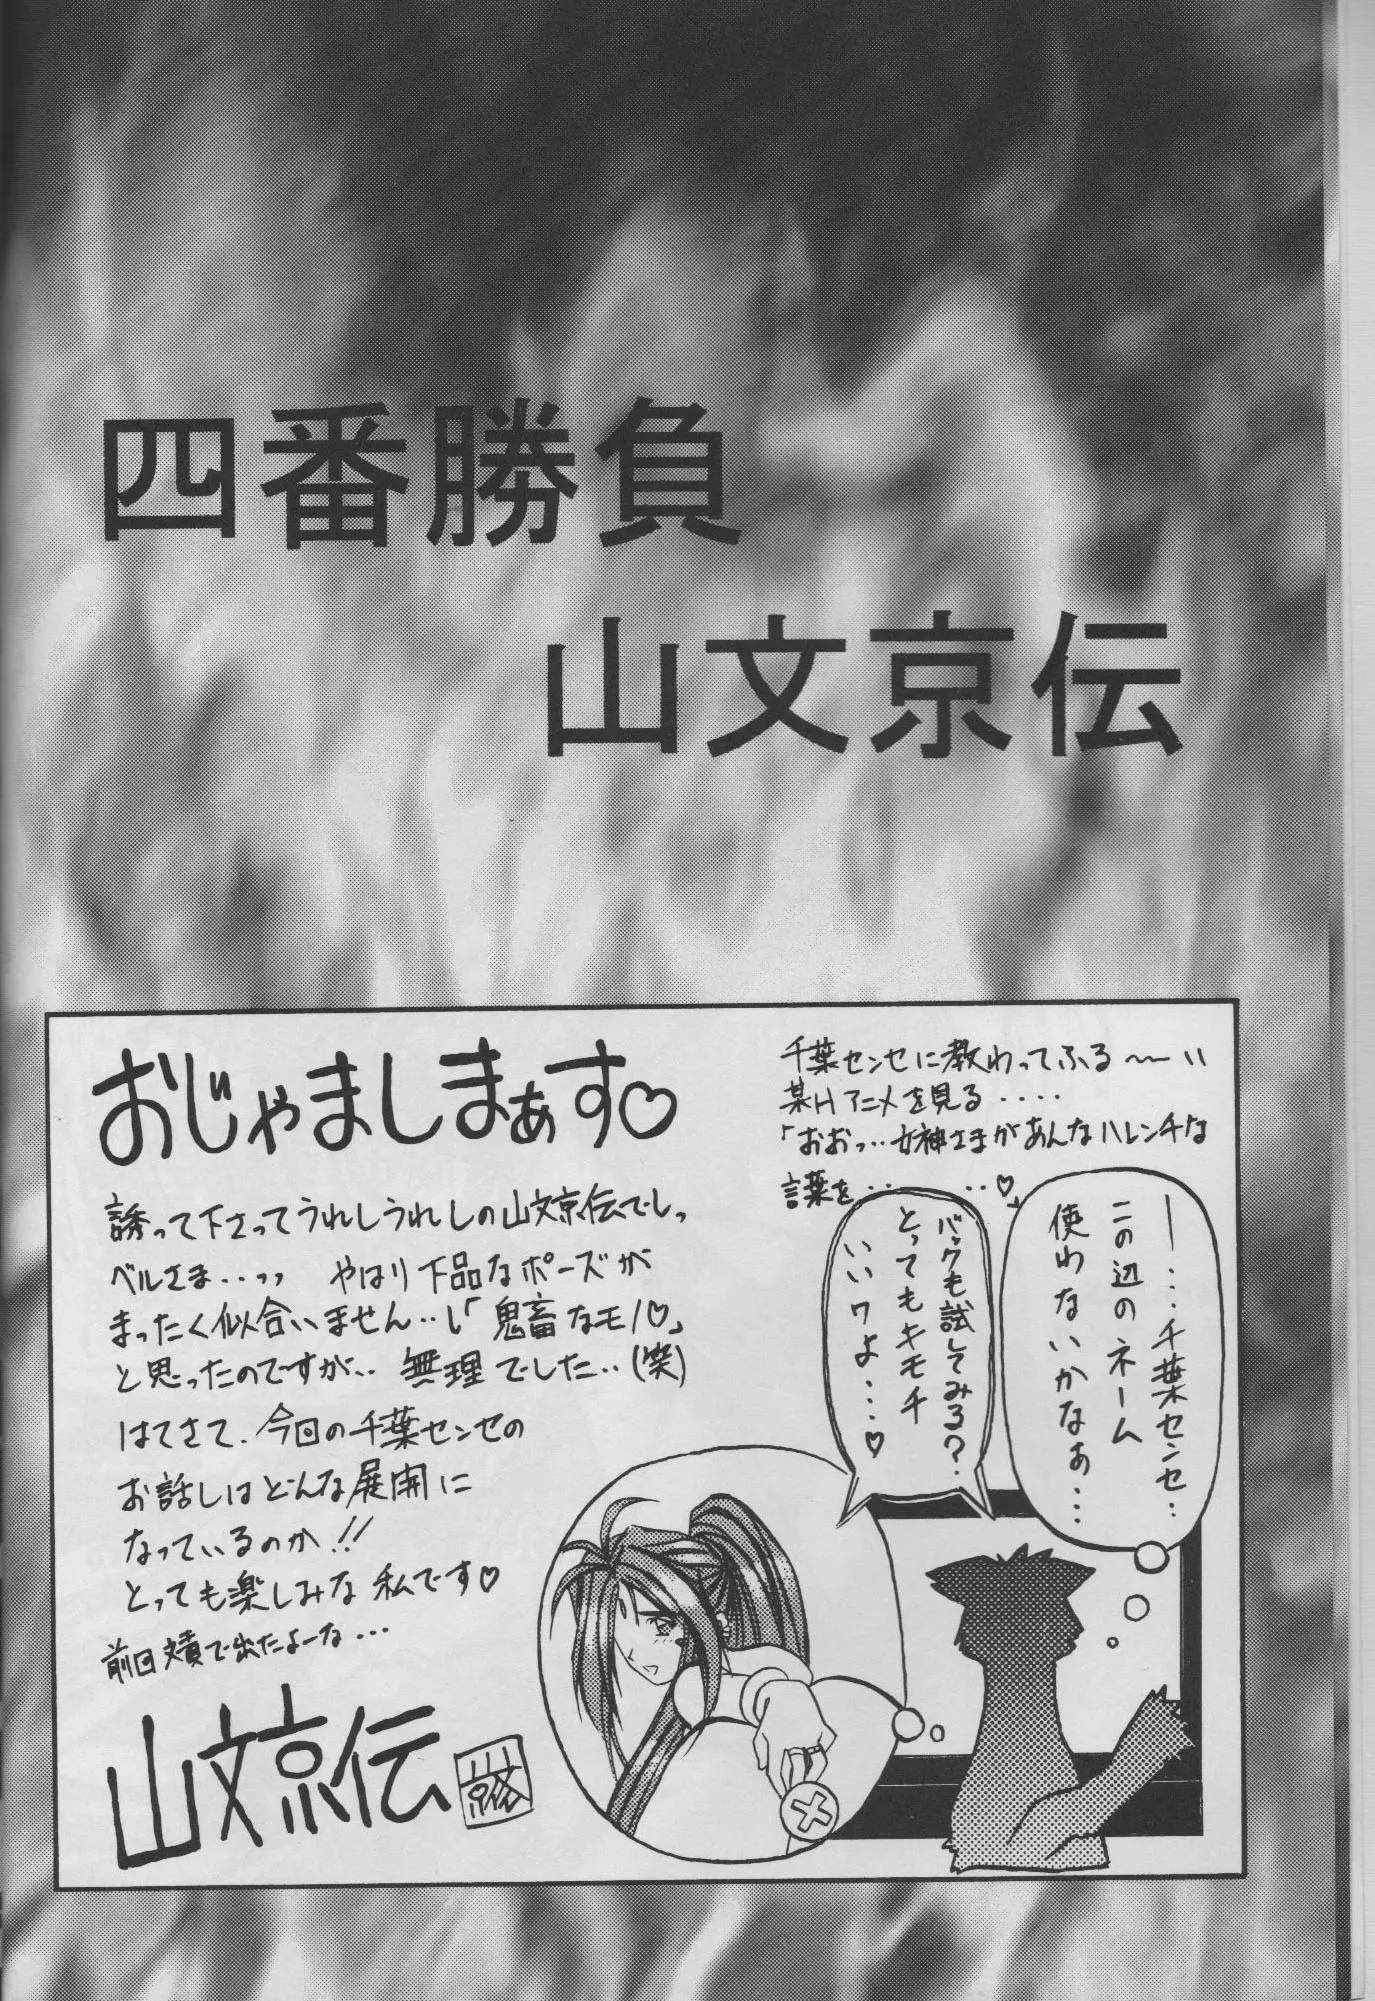 四番勝負
山文京伝
おじゃましまぁす♡
誘って下さってうれしうれしの山文京伝でしっ
ベルさま‥っっ やはり下品なポーズが
まったく似合いません‥し「鬼畜なモノ♡」
と思ったのですが‥ 無理でした‥(笑)
はてさて、今回の千葉センセの
お話しはどんな展開に
なっているのか!!
とっても楽しみな私です♡
前回
で出たよーな…
山文京伝
千葉センセに教わってふる〜〜い
某Hアニメを見る‥‥
「おおっ…女神さまがあんなハレンチな
言葉を‥‥‥♡」
―…千葉センセ…
この辺のネーム
使わないかなぁ…
バックも試してみる?
とってもキモチ
いいワよ…♡